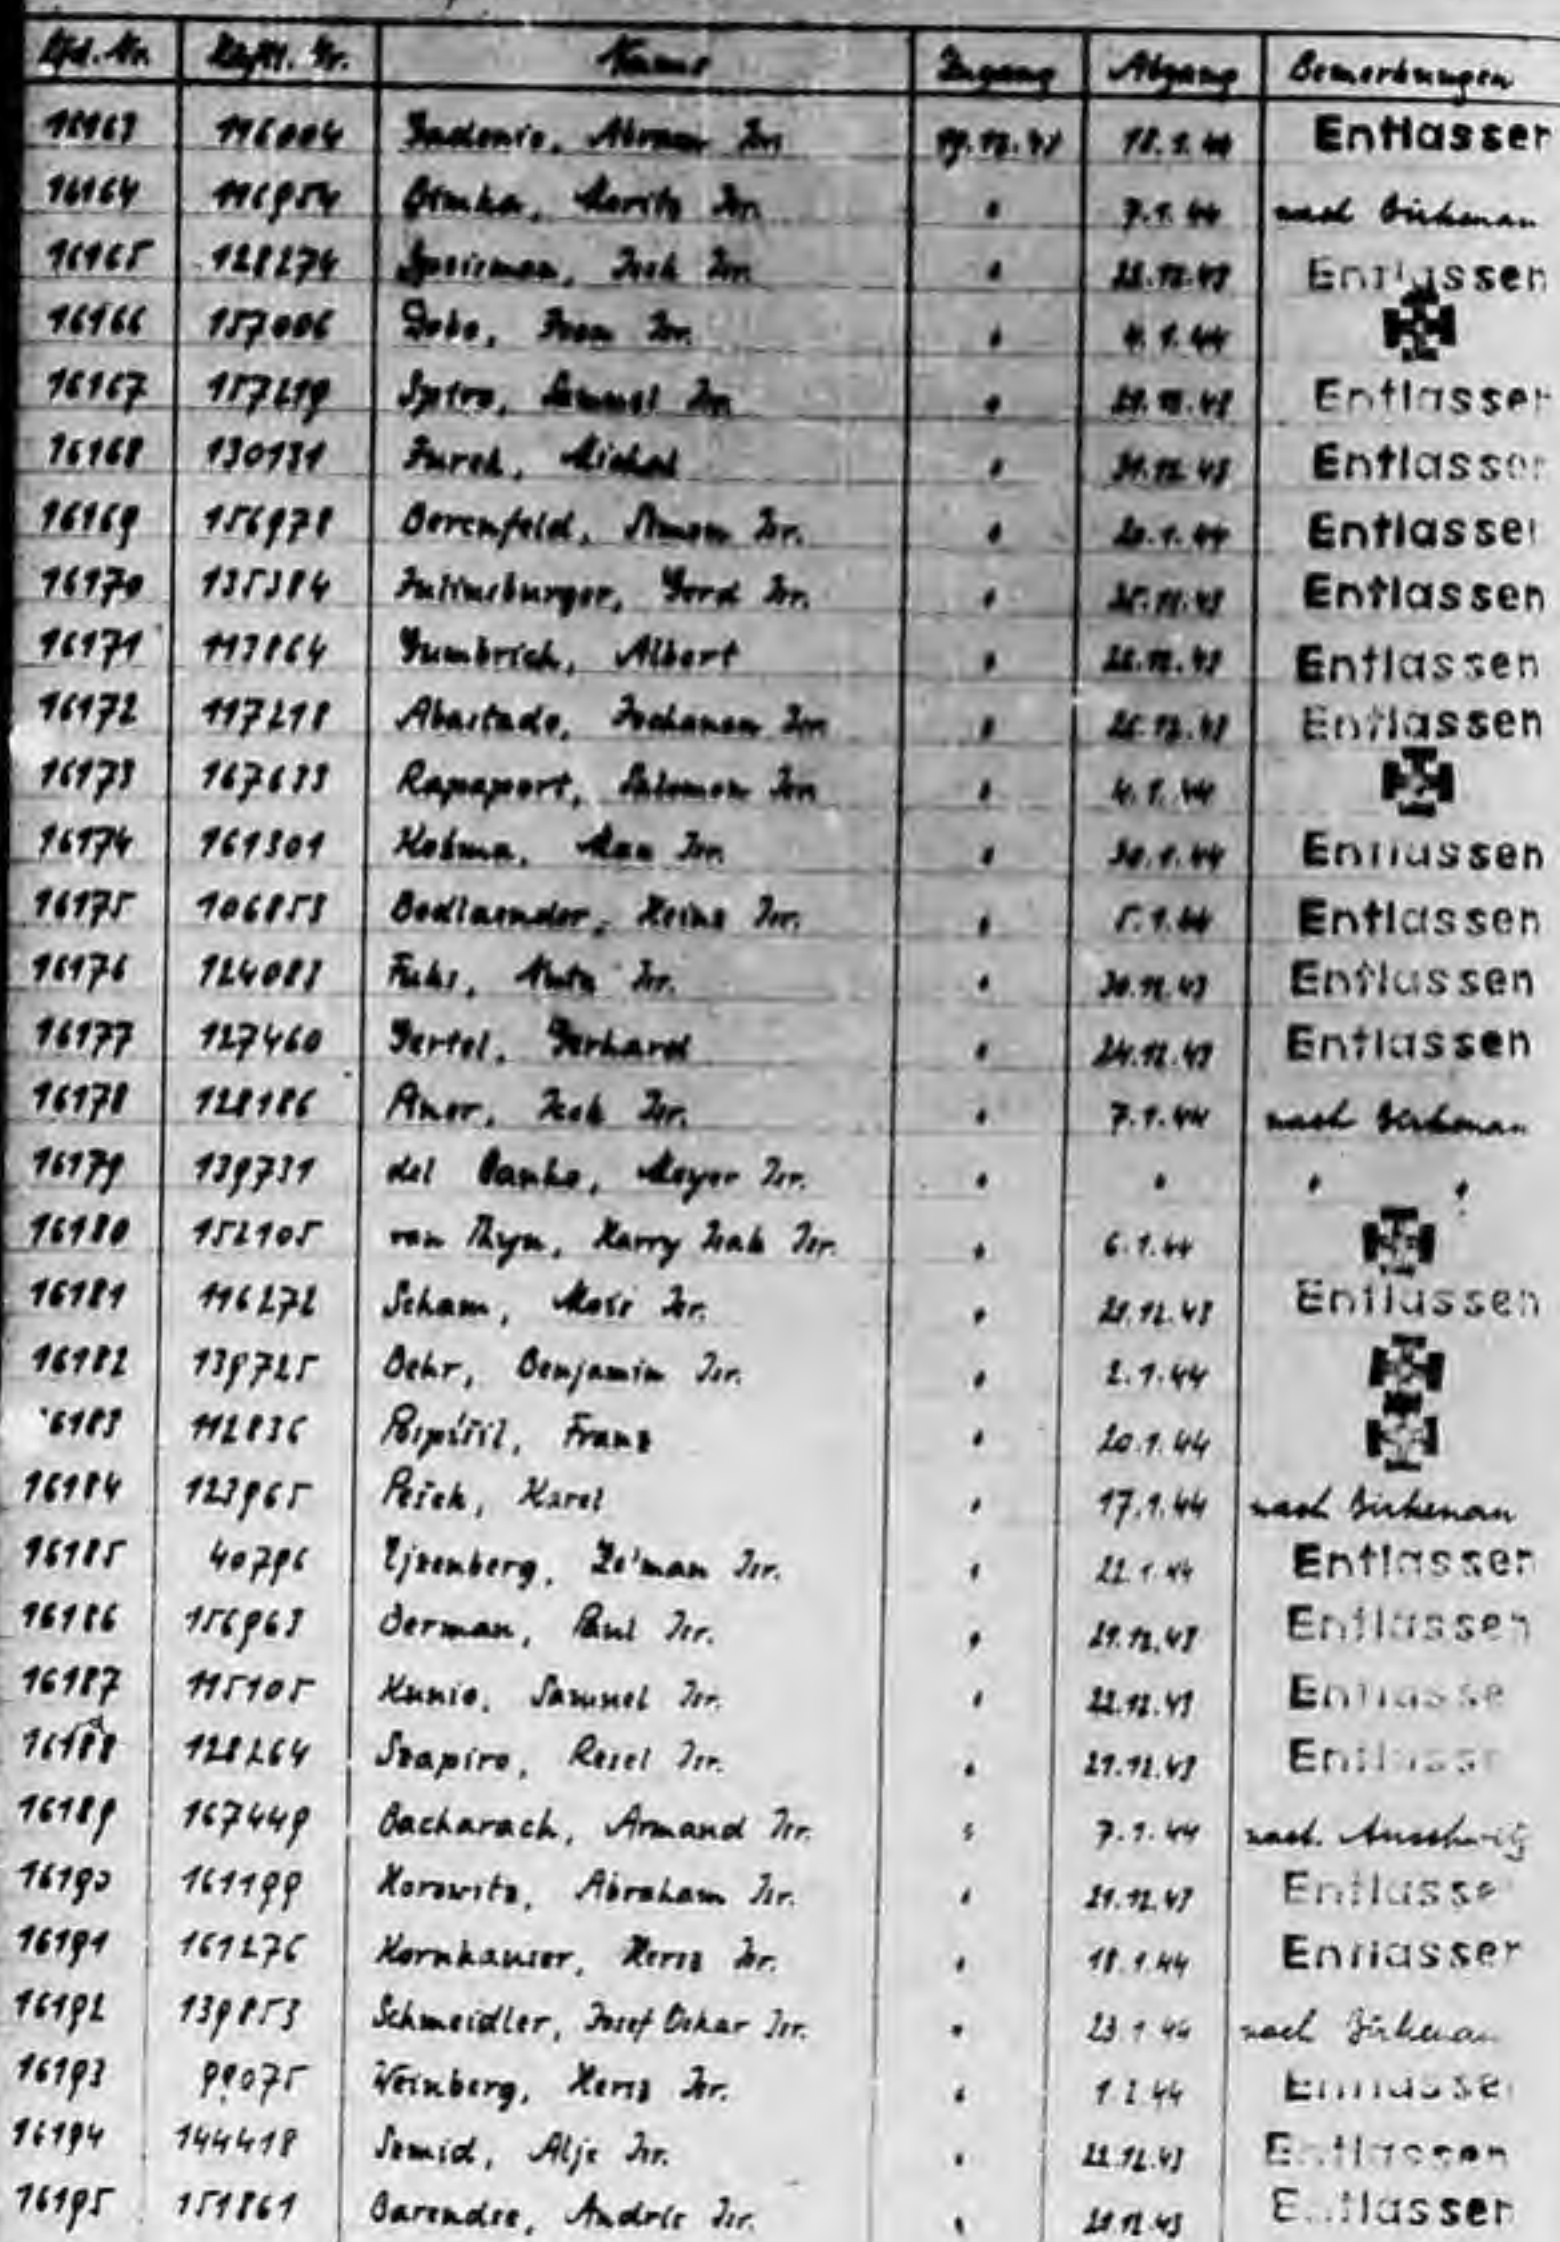 Lfd. Nr. Häftl. Nr. Name Zugang Abgang Bemerkungen
16163 116004 Abram Isr. 19.12.43 18.1.44 Entlassen
16164 116954 Moritz Isr. " 7.1.44 nach Birkenau
16165 128274 Isr. " Entlassen
16166 157006 Isr. " 4.1.44
16167 157219 Spiro, Samuel Isr. " Entlassen
16168 130131 Michel " 31.12.43 Entlassen
16169 156978 Berenfeld, Simon Isr. " 20.1.44 Entlassen
16170 135384 Juliusburger, Gerd Isr. " Entlassen
16171 113864 Gumbrich, Albert " Entlassen
16172 117218 Abastado, Isr. " Entlassen
16173 167633 Rapaport, Salomon Isr. " 4.1.44
16174 161301 Max Isr. " 30.1.44 Entlassen
16175 106853 Bodlaender, Heinz Isr. " 5.1.44 Entlassen
16176 124083 Isr. " 30.12.43 Entlassen
16177 127460 Gertel, Gerhard " 24.12.43 Entlassen
16178 128186 Isr. " 7.1.44 nach Birkenau
16179 139731 del Meyer Isr. " " " "
16180 152105 van Thyn, Harry Isak Isr. " 6.1.44
16181 116272 Scham, Isr. " Entlassen
16182 139725 Behr, Benjamin Isr. " 2.1.44
6183 112836 Pospíšil, Franz " 20.1.44
16184 123965 Karel " 17.1.44 nach Birkenau
16185 40796 Ejzenberg, Isr. " 22.1.44 Entlassen
16186 156963 Berman, Paul Isr. " 29.12.43 Entlassen
16187 115105 Kunio, Samuel Isr. " 22.12.43 Entlasse
16188 128264 Szapiro, Isr. " Entlassen
16189 167449 Bacharach, Armand Isr. " 7.1.44 nach Auschwitz
16190 161199 Horowitz, Abraham Isr. " Entlasse
16191 161276 Kornhauser, Hersz Isr. " 18.1.44 Entlassen
16192 139853 Schmeidler, Josef Oskar Isr. " 23.1.44 nach Birkenau
16193 99075 Weinberg, Hersz Isr. " 1.2.44 Entlassen
16194 144418 Szmid, Alje Isr. " 22.12.43 Entlassen
16195 151861 Barendse, Andries Isr. " Entlassen